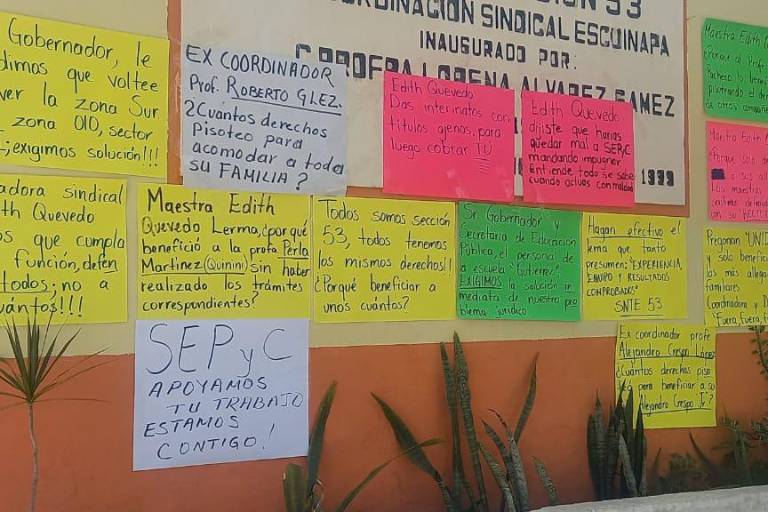 53
COORDINACIÓN SINDICAL ESCUINAPA
INAUGURADO POR:
C. PROFRA LORENA ALVAREZ GAMEZ
1999
Gobernador, le
dimos que voltee
ver la zona Sur
zona 010, sector
¡exigimos solución!!!
EX COORDINADOR
Prof. ROBERTO GLEZ.
¿Cuántos derechos
Pisoteo para
acomodar a toda
SU FAMILIA?
Edith Quevedo
Dos interinatos con
titulos ajenos, para
luego cobrar TÚ
Edith Quevedo
dijiste que harias
quedar mal a SEPyC
mandando impugner
Entiende todo se sabe
cuando actuas con maldad
Maestra Edith
¿Porque al Profe
Pacheco lo
pisotiando el
de otros compañe
Maestra Edith
¿Porque solo
a sus
Las maestras
adora sindical
th Quevedo
os que cumpla
función, defen
todos; no a
uántos!!!
Maestra Edith
Quevedo Lerma, ¿por qué
benefició a la profa Perla
Martinez (Quinini) sin haber
realizado los trámites
correspondientes?
Todos somos sección
53, todos tenemos
los mismos derechos!!
¿Porqué beneficiar a
unos cuántos?
Sr. Gobernador y
Secretaria de Educación
Pública, el personal de
a escuela "Gutierrez"
EXIGIMOS la solución in
mediata de nuestro pro
blema jurídico
Hagan efectivo el
lema que tanto
presumen: "EXPERIENCIA,
EMPUJE Y RESULTADOS
COMPROBADOS"
SNTE 53
Pregonan "UNID
y solo benefici
los más allega
familiares
Coordinadora y D
"Fuera, fuera, f
SEP y C
APOYAMOS
TU TRABAJO
ESTAMOS
CONTIGO!
Ex coordinador profe
Alejandro Crespo López
¿Cuántos derechos piso
teó para beneficiar a su
Alejandro Crespo Jr?